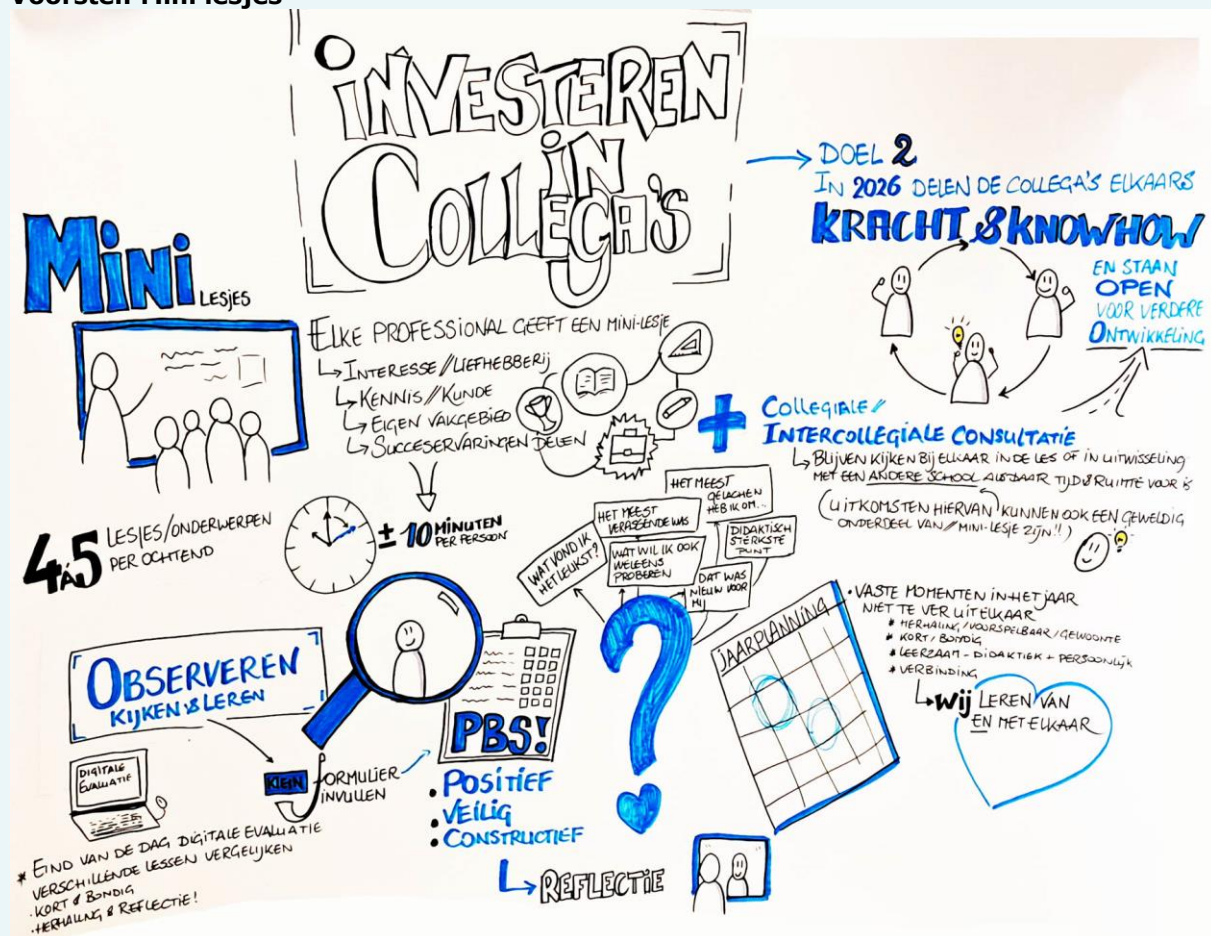 INVESTEREN
IN
COLLEGA'S
DOEL 2
IN 2026 DELEN DE COLLEGA'S ELKAARS
KRACHT & KNOWHOW
EN STAAN
OPEN
VOOR VERDERE
ONTWIKKELING
MINI
LESJES
ELKE PROFESSIONAL GEEFT EEN MINI-LESJE
INTERESSE // LIEFHEBBERIJ
KENNIS // KUNDE
EIGEN VAKGEBIED
SUCCESERVARINGEN DELEN
± 10 MINUTEN
PER PERSOON
4 á 5 LESJES/ONDERWERPEN
PER OCHTEND
+ COLLEGIALE //
INTERCOLLEGIALE CONSULTATIE
BLIJVEN KIJKEN BIJ ELKAAR IN DE LES OF IN UITWISSELING
MET EEN ANDERE SCHOOL ALS DAAR TIJD & RUIMTE VOOR IS
(UITKOMSTEN HIERVAN KUNNEN OOK EEN GEWELDIG
ONDERDEEL VAN // MINI-LESJE ZIJN!!)
HET MEEST
GELACHEN
HEB IK OM...
HET MEEST
VERASSENDE WAS
DIDAKTISCH
STERKSTE
PUNT
WAT VOND IK
HET LEUKST?
WAT WIL IK OOK
WELEENS
PROBEREN
DAT WAS
NIEUW VOOR
MIJ
?
JAARPLANNING
• VASTE MOMENTEN IN HET JAAR
NIET TE VER UIT ELKAAR
* HERHALING / VOORSPELBAAR / GEWOONTE
* KORT / BONDIG
* LEERZAAM - DIDAKTIEK + PERSOONLIJK
* VERBINDING
WIJ LEREN VAN
EN MET ELKAAR
OBSERVEREN
KIJKEN & LEREN
PBS!
DIGITALE
EVALUATIE
KLEIN FORMULIER
INVULLEN
• POSITIEF
• VEILIG
• CONSTRUCTIEF
REFLECTIE
* EIND VAN DE DAG DIGITALE EVALUATIE
VERSCHILLENDE LESSEN VERGELIJKEN
• KORT & BONDIG
• HERHALING & REFLECTIE!